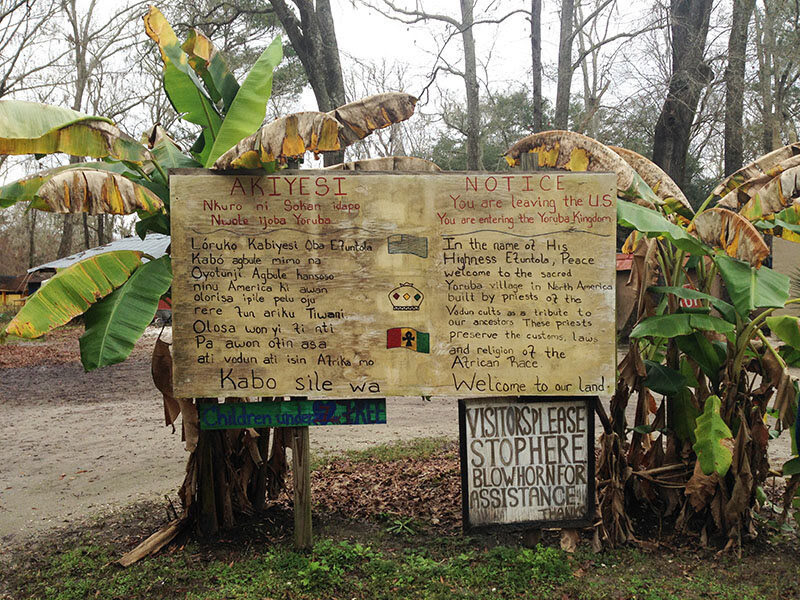 AKIYESI
Nkuro ni Sokan idapo
Niwole Ijoba Yoruba
Lóruko Kabiyesi Oba Efuntola
Kabó agbule mimo na
Oyotunji Agbule hansoso
ninu America ki awan
olorisa ipile pelu oju
rere fun ariku Tiwani
Olosa won yi fi nti
Pa awon ofin asa
ati vodun ati isin Afrika mo
Kabo sile wa
NOTICE
You are leaving the U.S.
You are entering the Yoruba Kingdom
In the name of His
Highness Efuntola, Peace
welcome to the sacred
Yoruba village in North America
built by priests of the
Vodun cults as a tribute to
our ancestors These priests
preserve the customs, laws
and religion of the
African Race
Welcome to our land
Children under FREE
VISITORS PLEASE
STOP HERE
BLOW HORN FOR
ASSISTANCE
THANKS